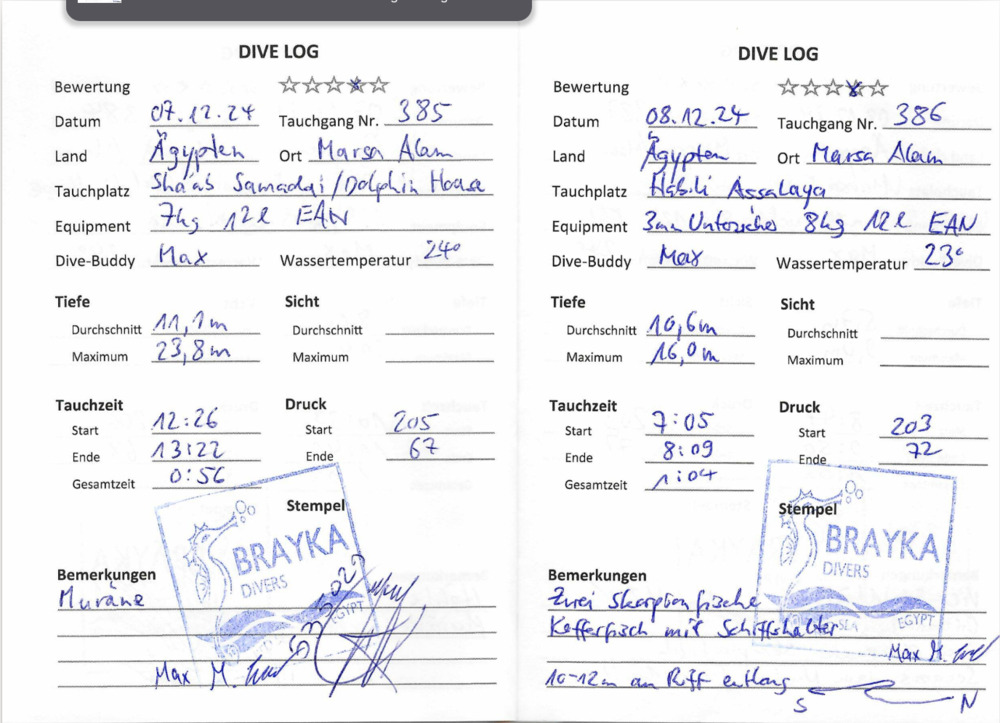 DIVE LOG
Bewertung
Datum 07.12.24 Tauchgang Nr. 385
Land Ägypten Ort Marsa Alam
Tauchplatz Sha'ab Samadai/Dolphin House
Equipment 7kg 12l EAN
Dive-Buddy Max Wassertemperatur 24°
Tiefe Sicht
Durchschnitt 11,1m Durchschnitt
Maximum 23,8m Maximum
Tauchzeit Druck
Start 12:26 Start 205
Ende 13:22 Ende 67
Gesamtzeit 0:56
Stempel
BRAYKA
DIVERS
EGYPT
Bemerkungen
Muräne
Max M.
DIVE LOG
Bewertung
Datum 08.12.24 Tauchgang Nr. 386
Land Ägypten Ort Marsa Alam
Tauchplatz Habili Assalaya
Equipment 3mm Unterzieher 8kg 12l EAN
Dive-Buddy Max Wassertemperatur 23°
Tiefe Sicht
Durchschnitt 10,6m Durchschnitt
Maximum 16,0m Maximum
Tauchzeit Druck
Start 7:05 Start 203
Ende 8:09 Ende 72
Gesamtzeit 1:04
Stempel
BRAYKA
DIVERS
EGYPT
Bemerkungen
Zwei Skorpionfische
Kofferfisch mit Schiffshalter
Max M.
10-12m am Riff entlang
S N